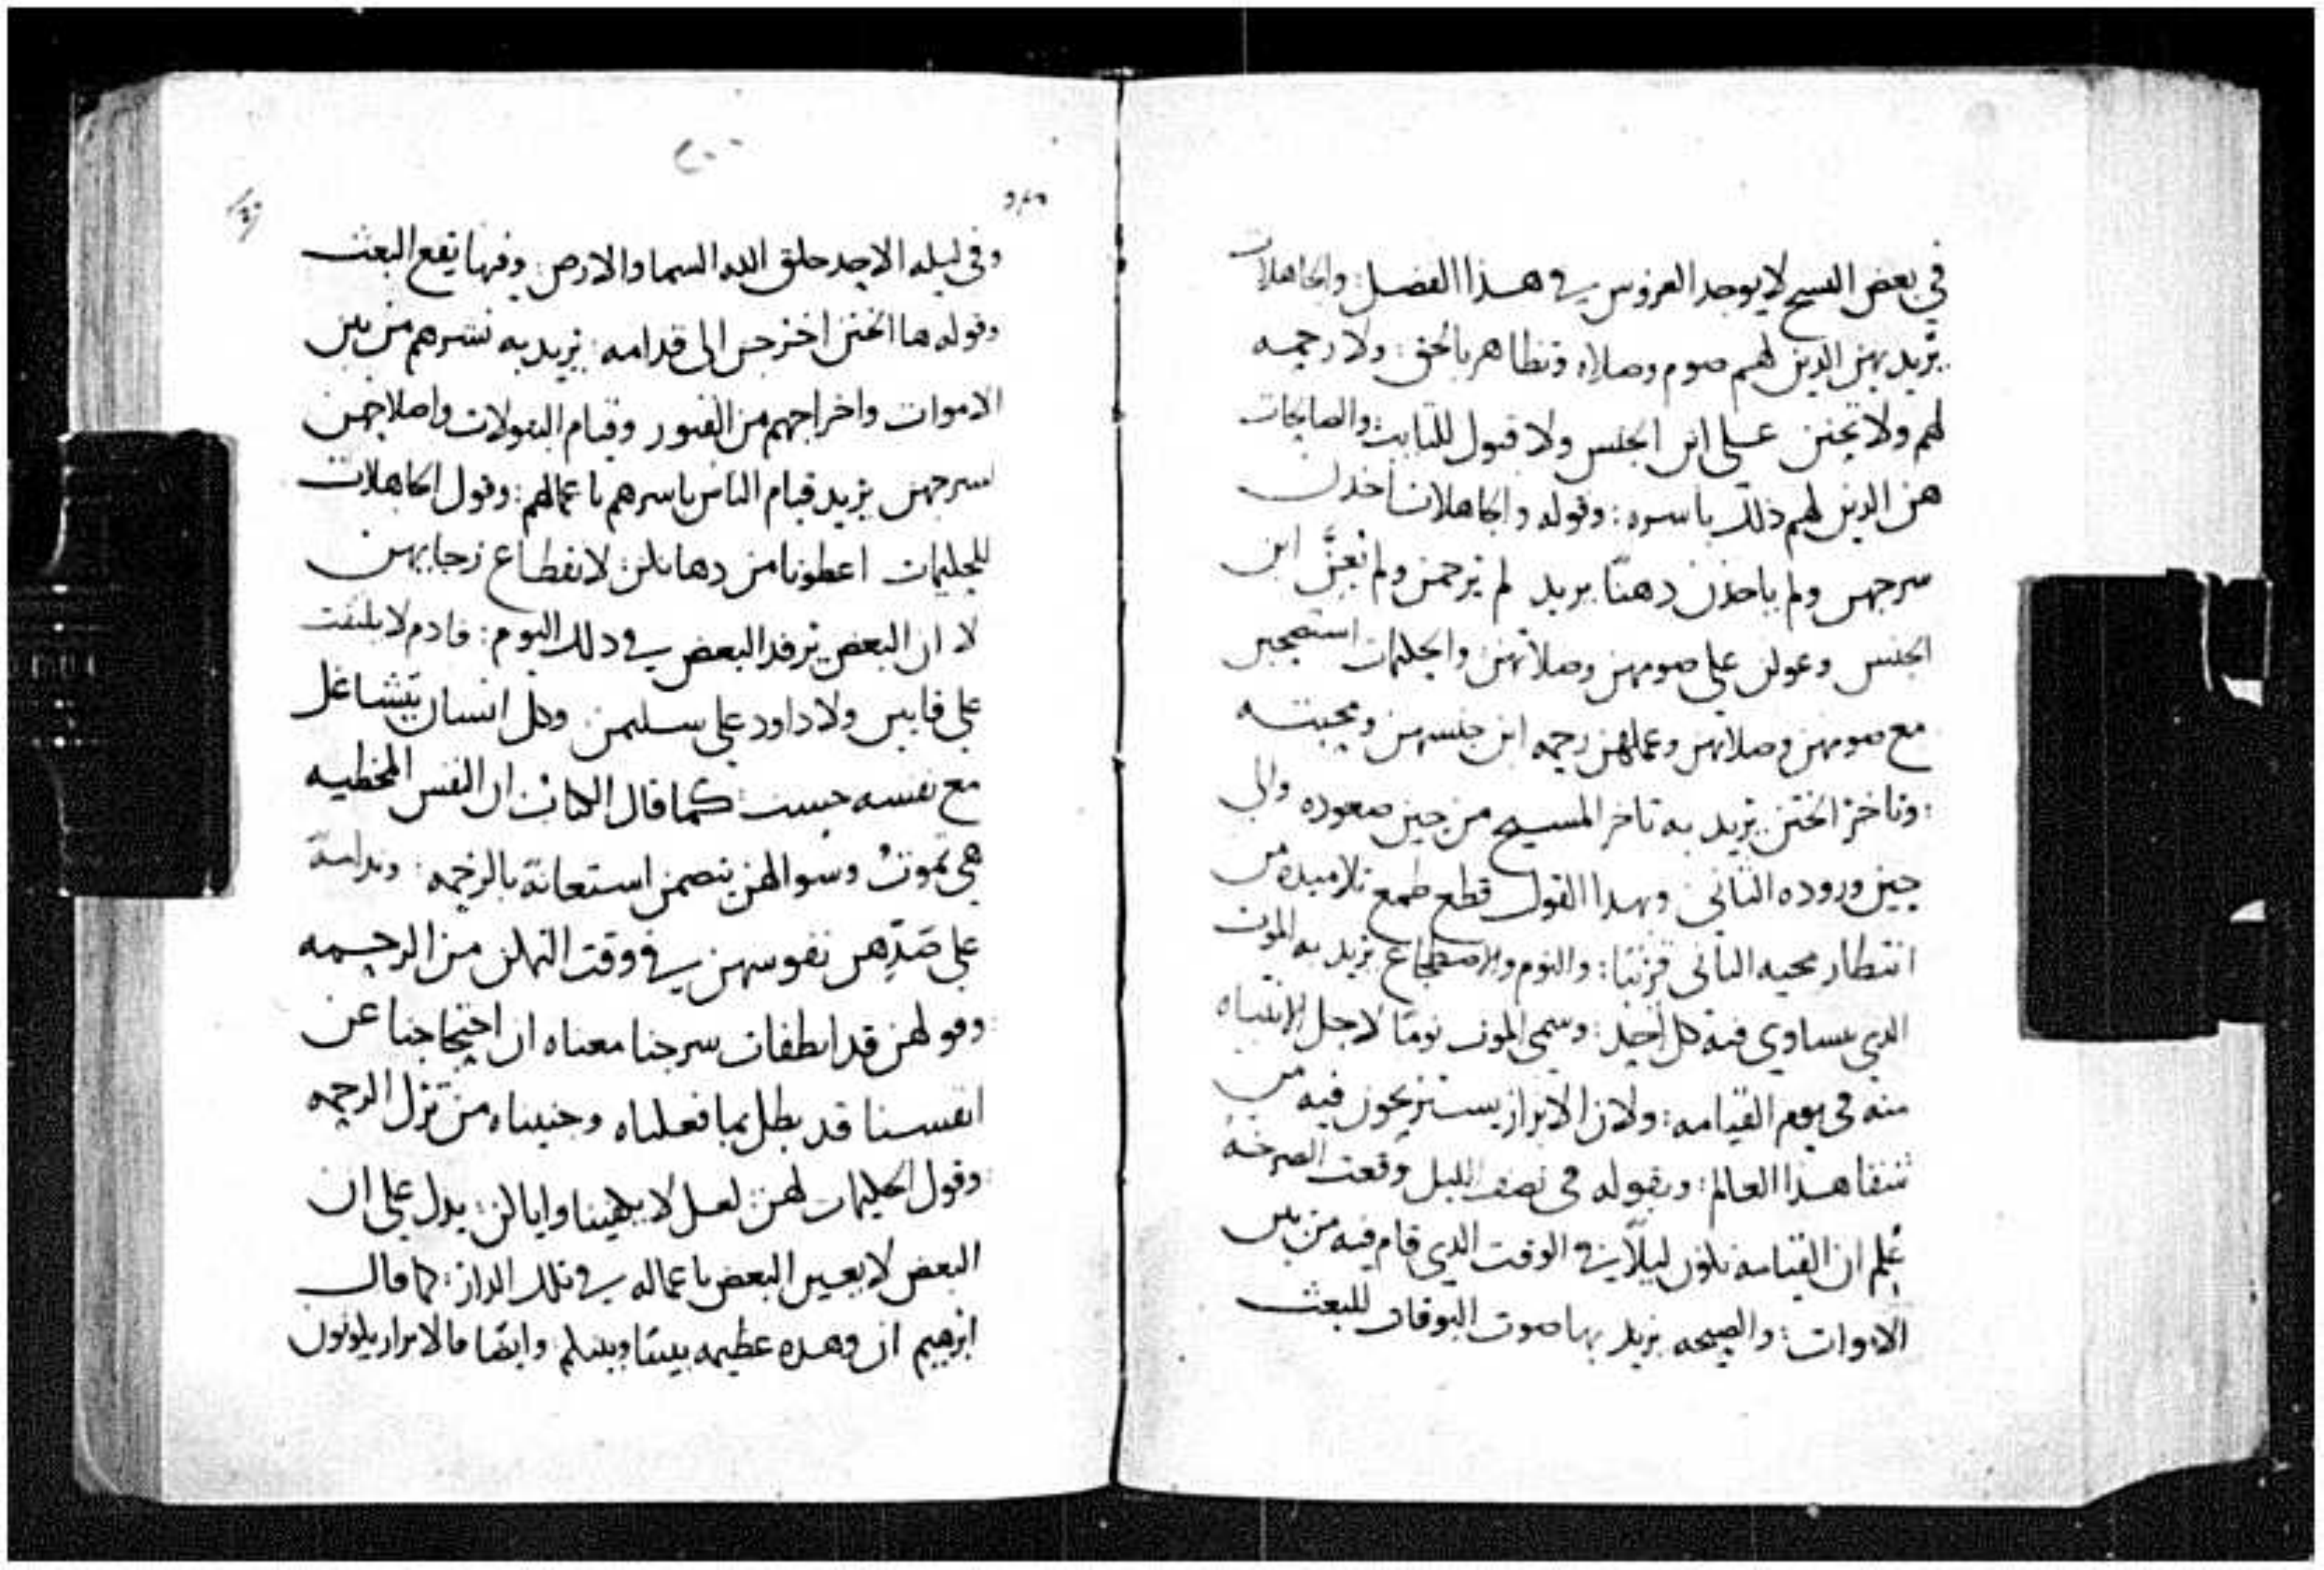 في بعض النسخ لا يوجد العروس في هذا الفصل: والجاهلات
يريد بهن الذين لهم صوم وصلاه وتظاهر بالحق: ولا رحمه
لهم ولا تحنن على ابن الجنس ولا قبول للتايب والصالحات
هن الذين لهم ذلك باسره: وقوله والجاهلات اخذن
سرجهن ولم ياخذن دهنًا يريد لم ترحمن ولم تعن ابن
الجنس وعولن علي صومهن وصلاتهن والحليمات استصحبن
مع صومهن وصلاتهن وعملهن رحمه ابن جنسهن ومحبته
: وتاخر الختن يريد به تاخر المسيح من حين صعوده والي
حين وروده الثاني وبهذا القول قطع طمع تلاميذه من
انتظار مجيه الثاني قريبًا: والنوم والاضطجاع يريد به الموت
الذي يساوي فيه كل احد: وسمي الموت نومًا لاجل الانتباه
منه في يوم القيامه: ولان الابرار يستريحون فيه من
شقا هذا العالم: وبقوله في نصف الليل وقعت الصرخه
عُلم ان القيامه تكون ليلًا في الوقت الذي قام فيه من بين
الاموات: والصيحه يريد بها صوت البوقات للبعث
٢٠٠
وفي ليله الاحد خلق الله السما والارض: وفيها يقع البعث
وقوله ها الختن اخرجن الى قدامه: يريد به نشرهم من بين
الاموات واخراجهم من القبور وقيام البتولات واصلاحهن
لسرجهن يريد قيام الناس باسرهم باعمالهم: وقول الجاهلات
للحليمات اعطونا من دهنكن لانقطاع رجايهن
لا ان البعض يرفد البعض في ذلك اليوم: فادم لا يلتفت
علي قايين ولا داود علي سليمن وكل انسان يتشاغل
مع نفسه حسب: كما قال الكتاب ان النفس المخطيه
هي تموت وسوالهن يتضمن استعانة بالرحمه: وندامة
علي صدهن نفوسهن في وقت التمكن من الرحمه
: وقولهن قد انطفات سرجنا معناه ان احتجاجنا عن
انفسنا قد بطل بما فعلناه وجنيناه من ترك الرحمه
: وقول الحليمات لهن لعل لا يكفينا واياكن: يدل علي ان
البعض لا يعين البعض باعماله في تلك الدار: كما قال
ابرهيم ان وهده عظيمه بيننا وبينكم وايضا فالابرار يكونون